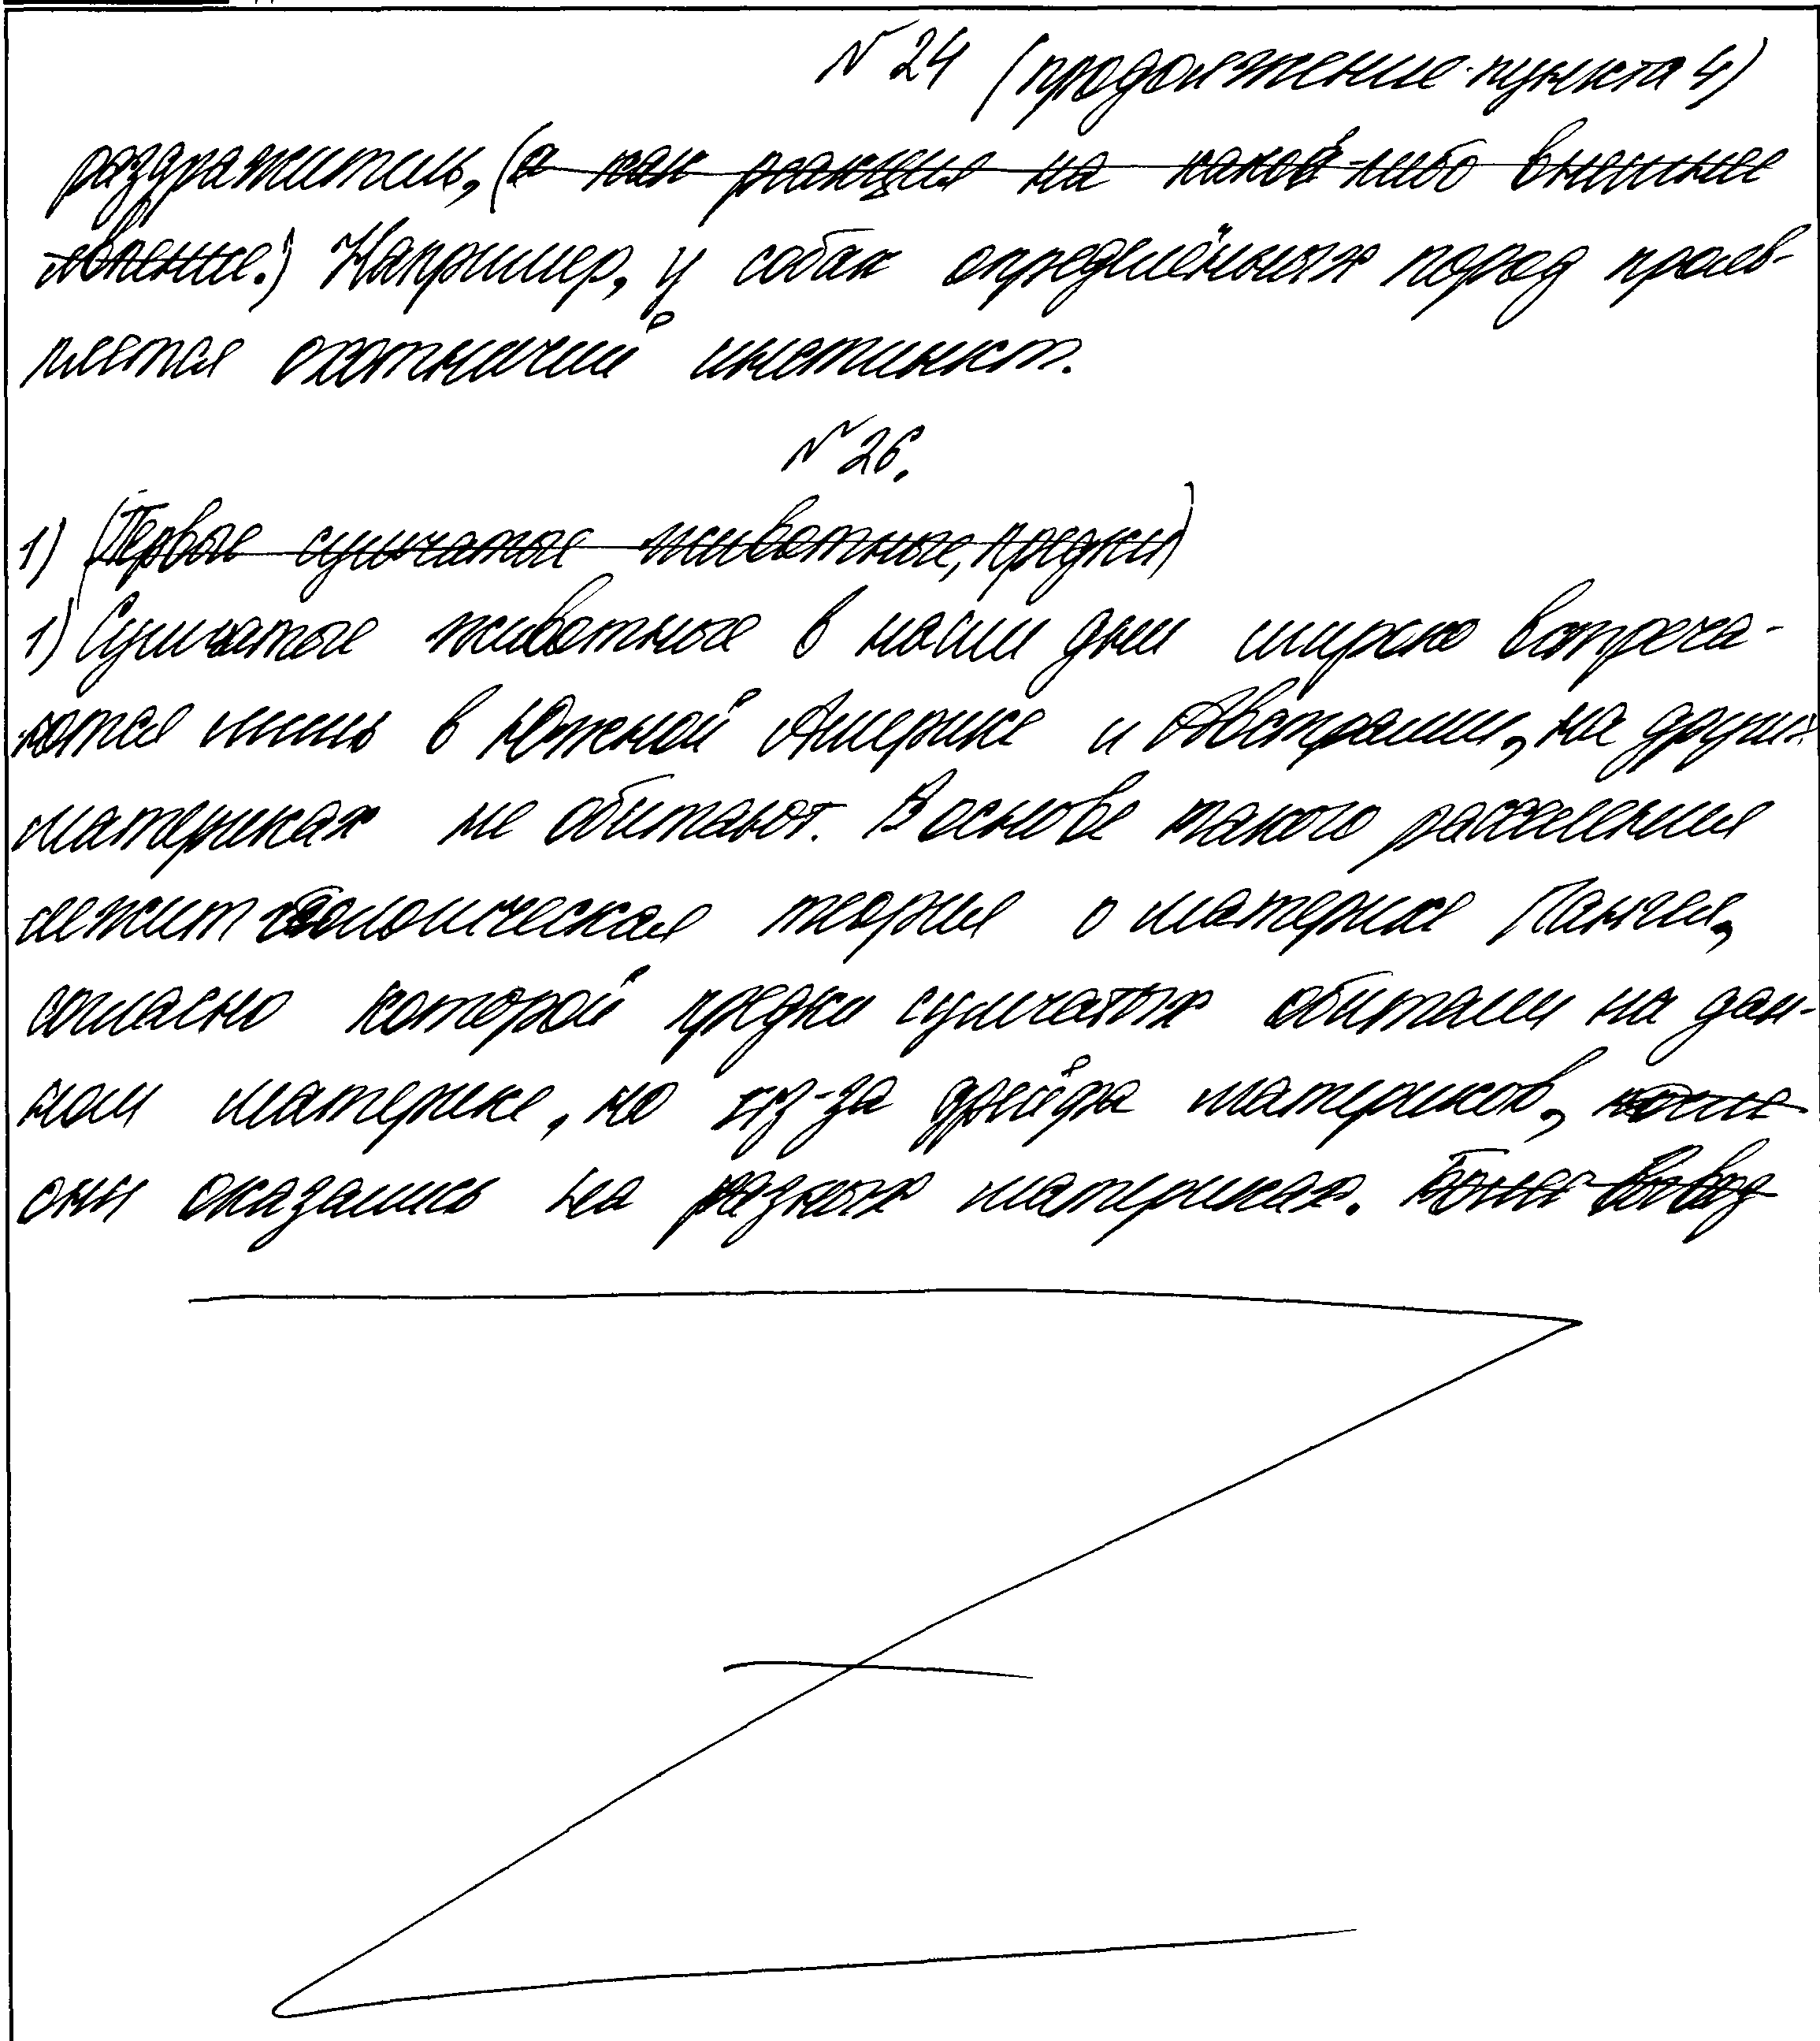 N 24 (продолжение пункта 4)
раздражитель, (а как реакция на какое-либо внешнее
явление.) Например, у собак определённых пород прояв-
ляется охотничий инстинкт.
N 26.
1) (Первые сумчатые животные, предки)
1) Сумчатые животные в наши дни широко встреча-
ются лишь в Южной Америке и Австралии, на других
материках не обитают. В основе такого расселения
лежит геологическая теория о материке Пангея,
согласно которой предки сумчатых обитали на дан-
ном материке, но из-за дрейфа материков,
они оказались на разных материках.